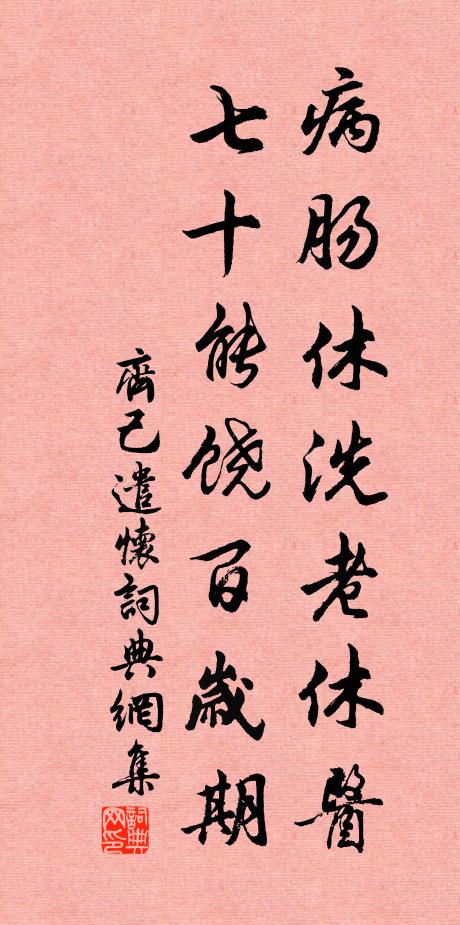 病肠休洗老休醫
七十能饶百歲期
齊己遣懷詞典網集
詞典网印